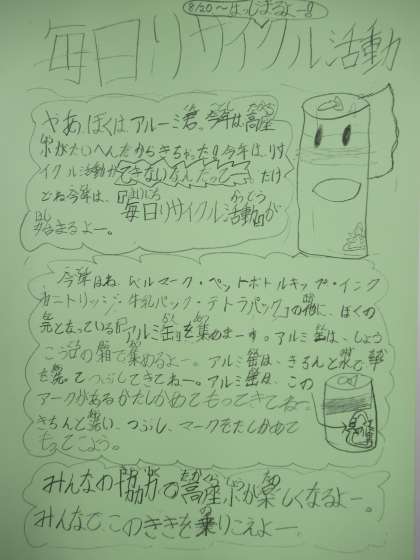 8/20〜はっじまるよー!!
毎日リサイクル活動
やあ、ぼくは、アルーミ君。今年は、高座
が たいへんだからきちゃった!今年は、リサ
イクル活動ができないなんだって──。だけ
どね今年は、『毎日リサイクル活動』が
始まるよー。
今年はね、ベルマーク・ペットボトルキャップ・インク
カートリッジ・牛乳パック・テトラパック』の他に、ぼくの
元となっている『アルミ缶』を集めまーす。アルミ缶は、しょう
こう口の箱で集めるよー。アルミ缶は、きちんと水で
を洗ってつぶしてきてねー。アルミ缶は、この
アークがあるかたしかめてもってきてねー。
きちんと洗い、つぶし、マークをたしかめて
もってこよう。
みんなの協力で高座 が楽しくなるよー。
みんなで、このききを乗りこえよー。